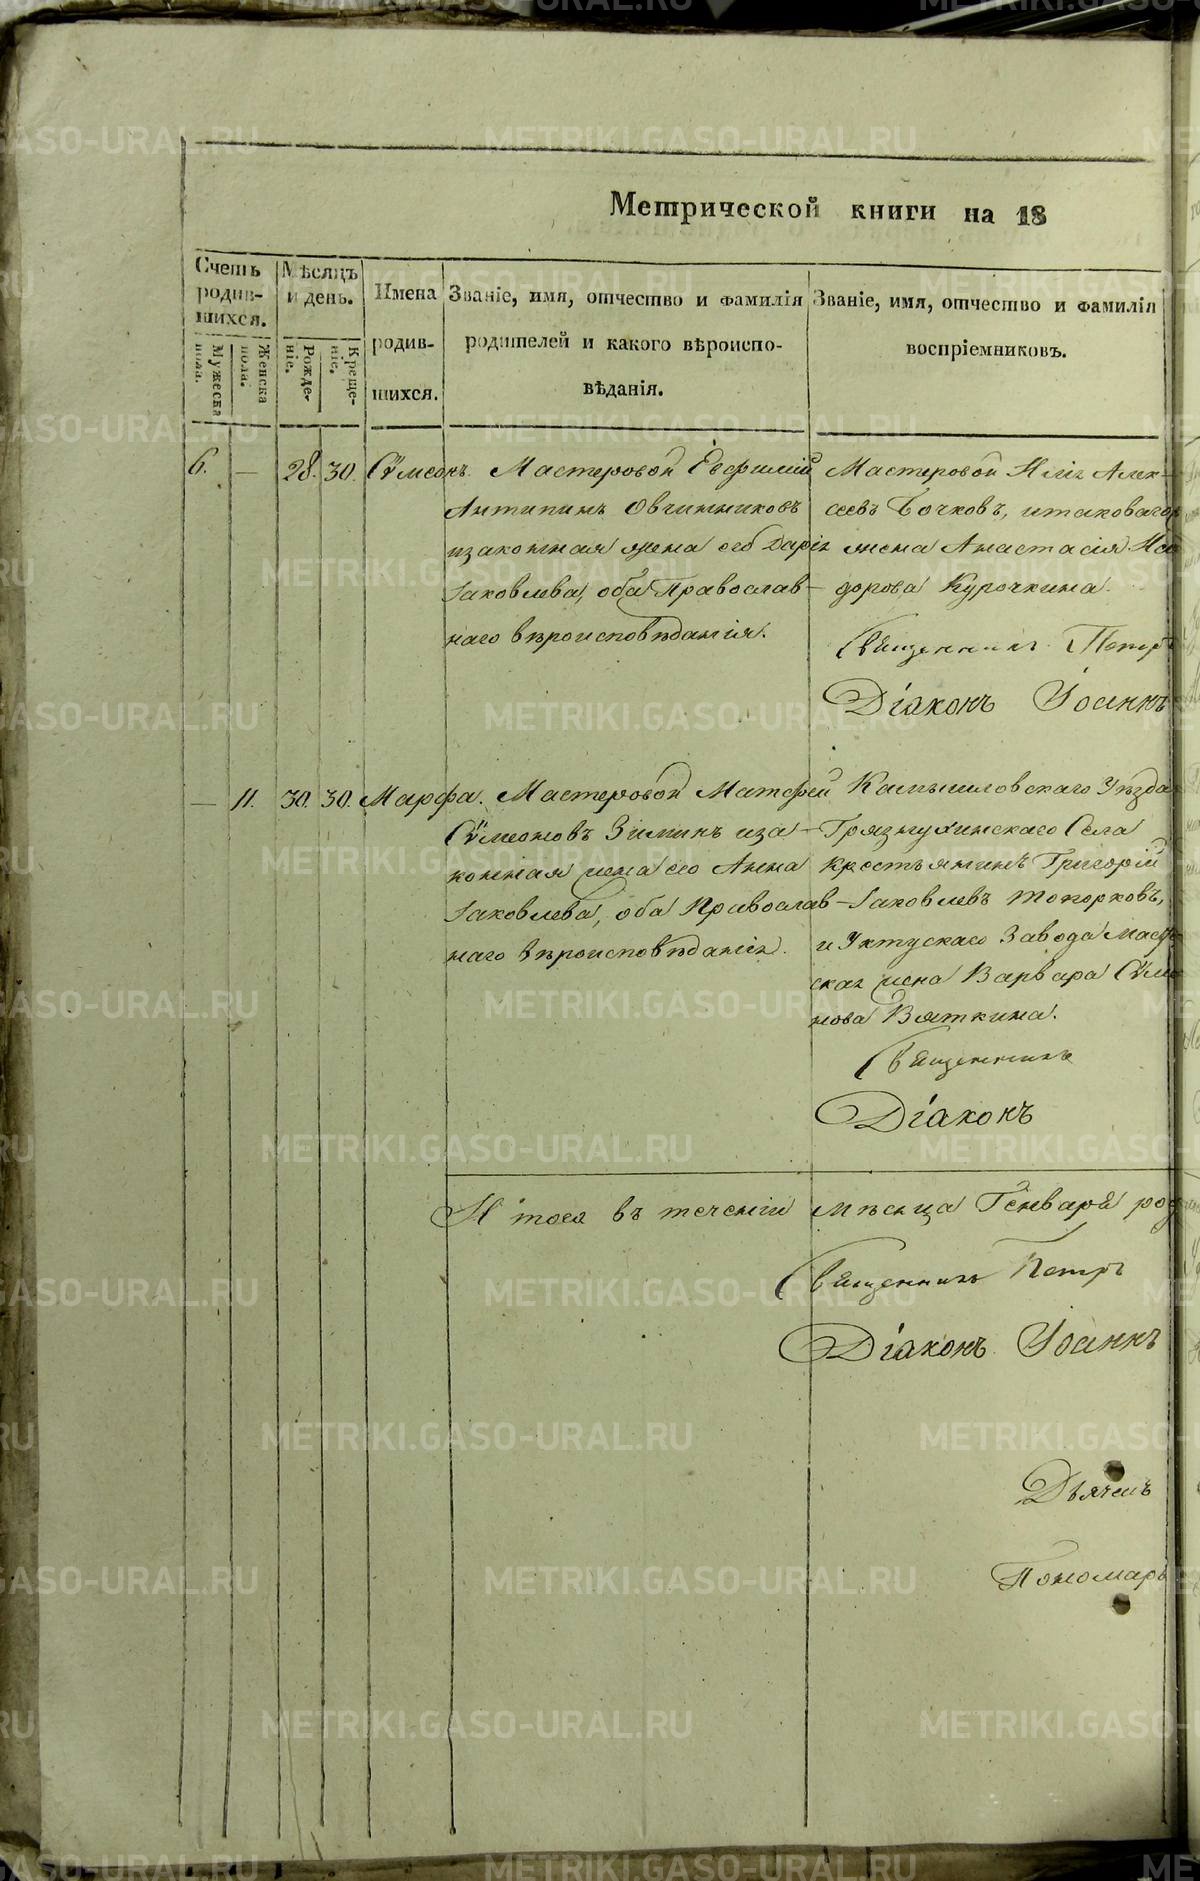 Метрической книги на 18
Счетъ родив-шихся.
Мужеска пола.
Женска пола.
Мѣсяцъ и день.
Рожде-ніе.
Креще-ніе.
Имена родив-шихся.
Званіе, имя, отчество и фамилія
родителей и какого вѣроиспо-
вѣданія.
Званіе, имя, отчество и фамилія
воспріемниковъ.
6. — 28. 30. Сѵмеонъ.
Мастеровой Евфимій
Антипинъ Овчинниковъ
изаконная жена его Дарія
Іаковлева, оба Православ-
наго вѣроисповѣданія.
Мастеровой Илія Алек-
сеевъ Бочковъ, итаковаго
жена Анастасія
дорова Курочкина.
Священникъ Петръ
Діаконъ Іоаннъ
— 11. 30. 30. Марфа.
Мастеровой Матфей
Сѵмеоновъ Зиминъ иза-
конная жена его Анна
Іаковлева, оба Православ-
наго вѣроисповѣданія.
Камышловскаго Уѣзда
Грязнухинскаго Села
крестьянинъ Григорій
Іаковлевъ Топорковъ,
и Уктускаго Завода
ская жена Варвара Сѵме
нова Вяткина.
Священникъ
Діаконъ
Итого въ теченіи мѣсяца Генваря род
Священникъ Петръ
Діаконъ Іоаннъ
Дьячекъ
Пономарь
METRIKI.GASO-URAL.RU